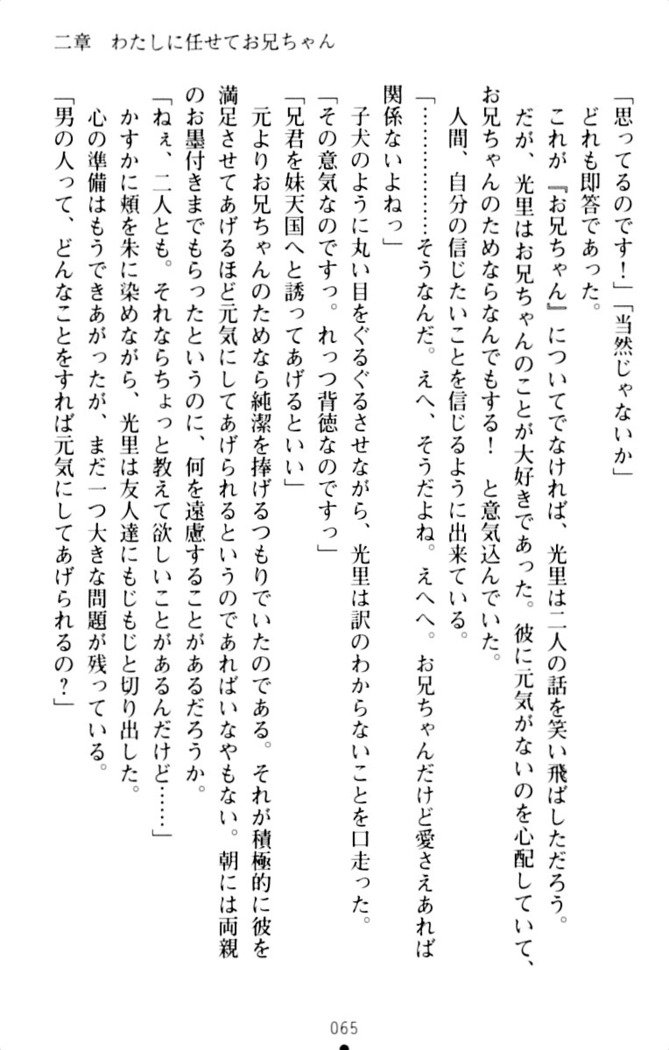 二章　わたしに任せてお兄ちゃん
「思ってるのです！」「当然じゃないか」
どれも即答であった。
これが『お兄ちゃん』についてでなければ、光里は二人の話を笑い飛ばしただろう。
だが、光里はお兄ちゃんのことが大好きであった。彼に元気がないのを心配していて、
お兄ちゃんのためならなんでもする！　と意気込んでいた。
人間、自分の信じたいことを信じるように出来ている。
「……………そうなんだ。えへ、そうだよね。えへへ。お兄ちゃんだけど愛さえあれば
関係ないよねっ」
子犬のように丸い目をぐるぐるさせながら、光里は訳のわからないことを口走った。
「その意気なのですっ。れっつ背徳なのですっ」
「兄君を妹天国へと誘ってあげるといい」
元よりお兄ちゃんのためなら純潔を捧げるつもりでいたのである。それが積極的に彼を
満足させてあげるほど元気にしてあげられるというのであればいなやもない。朝には両親
のお墨付きまでもらったというのに、何を遠慮することがあるだろうか。
「ねぇ、二人とも。それならちょっと教えて欲しいことがあるんだけど……」
かすかに頬を朱に染めながら、光里は友人達にもじもじと切り出した。
心の準備はもうできあがったが、まだ一つ大きな問題が残っている。
「男の人って、どんなことをすれば元気にしてあげられるの？」
065